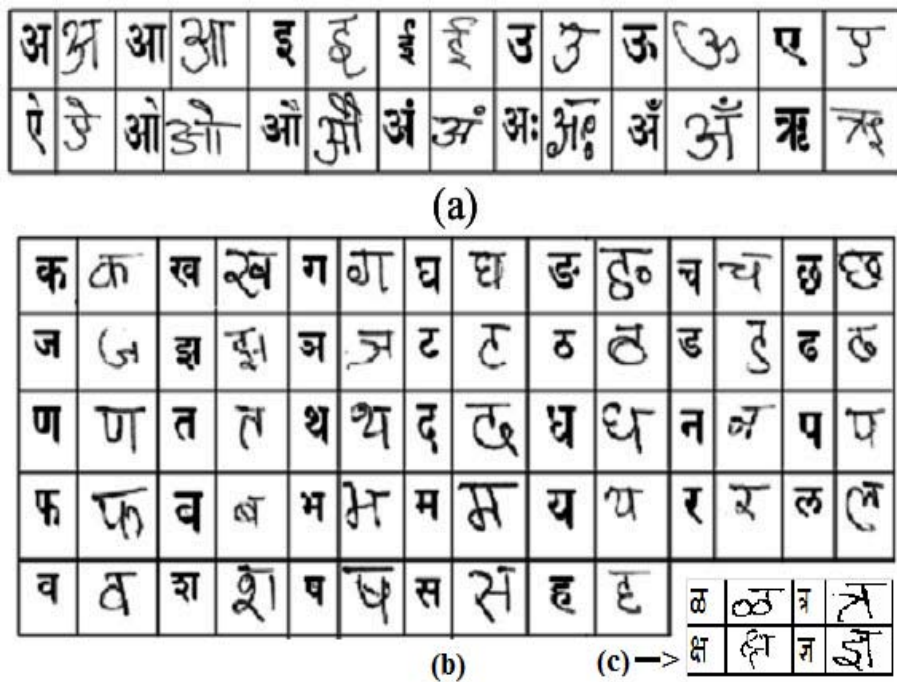 अ अ आ आ इ इ ई ई उ उ ऊ ऊ ए ए
ऐ ऐ ओ ओ औ औ अं अं अः अः अँ अँ ऋ ऋ
(a)
क क ख ख ग ग घ घ ङ ङ च च छ छ
ज ज झ झ ञ ञ ट ट ठ ठ ड ड ढ ढ
ण ण त त थ थ द द ध ध न न प प
फ फ ब ब भ भ म म य य र र ल ल
व व श श ष ष स स ह ह
ळ ळ त्र त्र
क्ष क्ष ज्ञ ज्ञ
(b) (c) -->